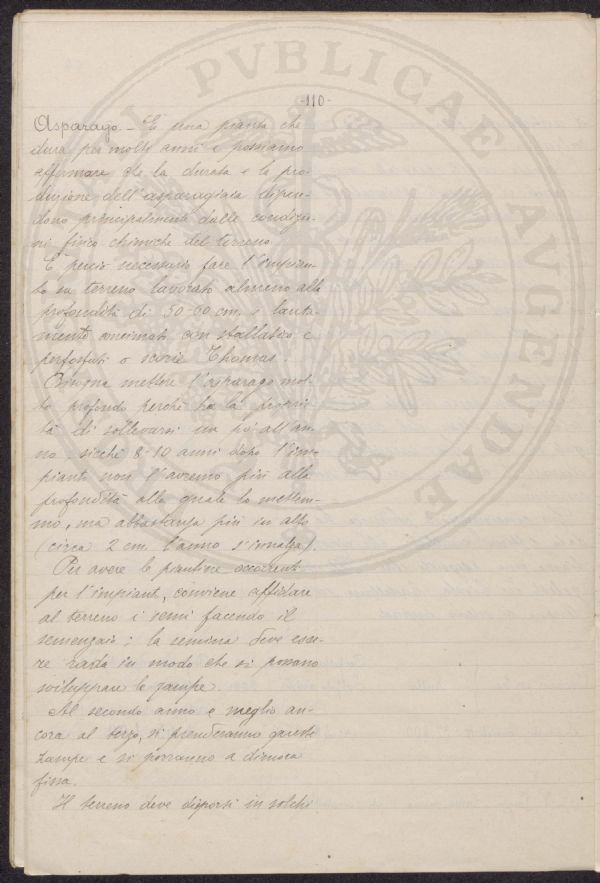 PVBLICAE
AVGENDAE
-110-
Asparago - È una pianta che
dura per molti anni e possiamo
affermare che la durata e la pro-
duzione dell'asparagiaia dipen-
dono principalmente dalle condizio-
ni fisico chimiche del terreno.
È perciò necessario fare l'impian-
to su terreno lavorato almeno alla
profondità di 50-60 cm. e lauta-
mente concimato con stallatico e
perfosfati o scorie Thomas.
Bisogna mettere l'asparago mol-
to profondo perchè ha la proprie-
tà di sollevarsi un po' all'an-
no: sicchè 8-10 anni dopo l'im-
pianto non l'avremo più alla
profondità alla quale lo mettem-
mo, ma abbastanza più in alto
(circa 2 cm. l'anno s'innalza).
Per avere le piantine occorrenti
per l'impianto, conviene affidare
al terreno i semi facendo il
semenzaio: la semina deve esse-
re rada in modo che si possano
sviluppare le zampe.
Al secondo anno e meglio an-
cora al terzo, si prenderanno queste
zampe e si porranno a dimora
fissa.
Il terreno deve disporsi in solchi